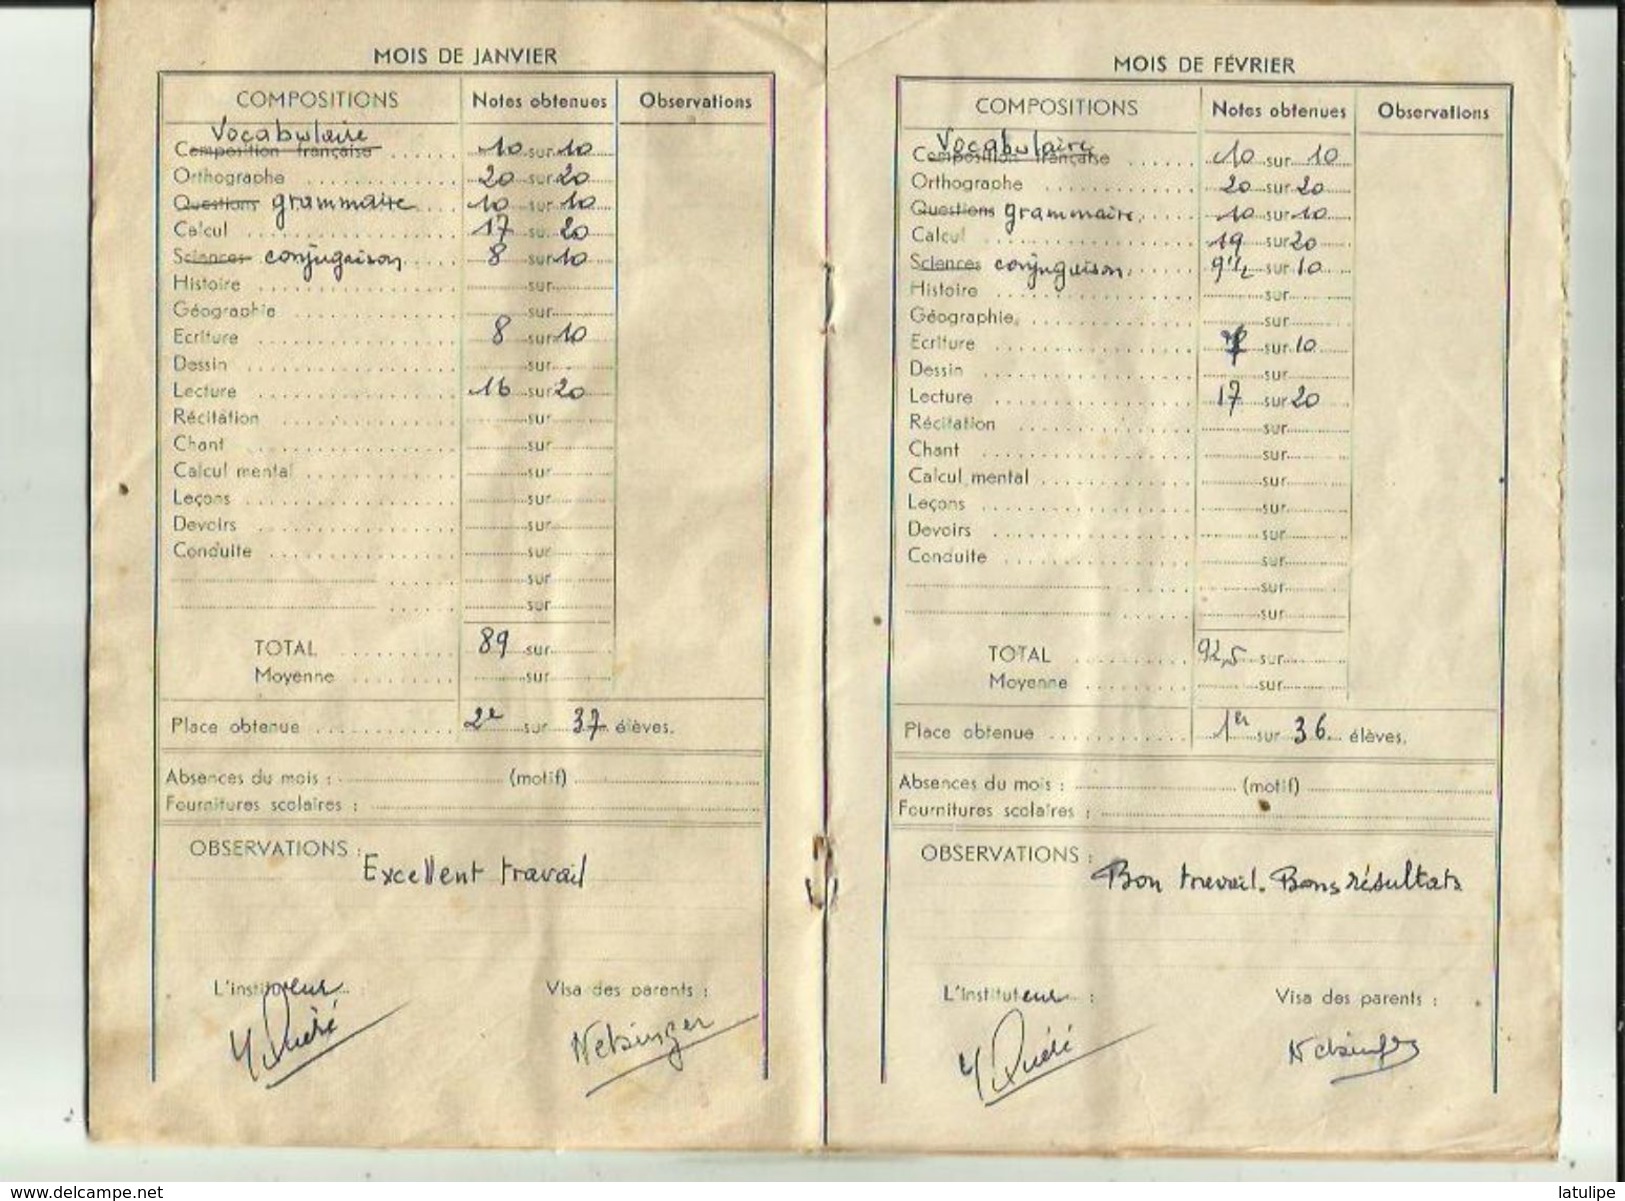 MOIS DE JANVIER
COMPOSITIONS Notes obtenues Observations
Vocabulaire
Composition française ...... 10 sur 10
Orthographe ............ 20 sur 20
Questions grammaire .... 10 sur 10
Calcul ................. 17 sur 20
Sciences conjugaison .... 8 sur 10
Histoire ............... sur
Géographie ............. sur
Ecriture ............... 8 sur 10
Dessin ................. sur
Lecture ................ 16 sur 20
Récitation ............. sur
Chant .................. sur
Calcul mental .......... sur
Leçons ................. sur
Devoirs ................ sur
Conduite ............... sur
sur
sur
TOTAL .......... 89 sur
Moyenne ......... sur
Place obtenue ............ 2e sur 37 élèves.
Absences du mois : (motif)
Fournitures scolaires :
OBSERVATIONS :
Excellent travail
L'instituteur : Visa des parents :
MOIS DE FÉVRIER
COMPOSITIONS Notes obtenues Observations
Vocabulaire
Composition française ...... 10 sur 10
Orthographe ............ 20 sur 20
Questions grammaire .... 10 sur 10
Calcul ................. 19 sur 20
Sciences conjugaison .... 9 1/2 sur 10
Histoire ............... sur
Géographie ............. sur
Ecriture ............... 7 sur 10
Dessin ................. sur
Lecture ................ 17 sur 20
Récitation ............. sur
Chant .................. sur
Calcul mental .......... sur
Leçons ................. sur
Devoirs ................ sur
Conduite ............... sur
sur
sur
TOTAL .......... 92,5 sur
Moyenne ......... sur
Place obtenue ............ 1er sur 36 élèves.
Absences du mois : (motif)
Fournitures scolaires :
OBSERVATIONS :
Bon travail. Bons résultats
L'Instituteur : Visa des parents :
www.delcampe.net latulipe